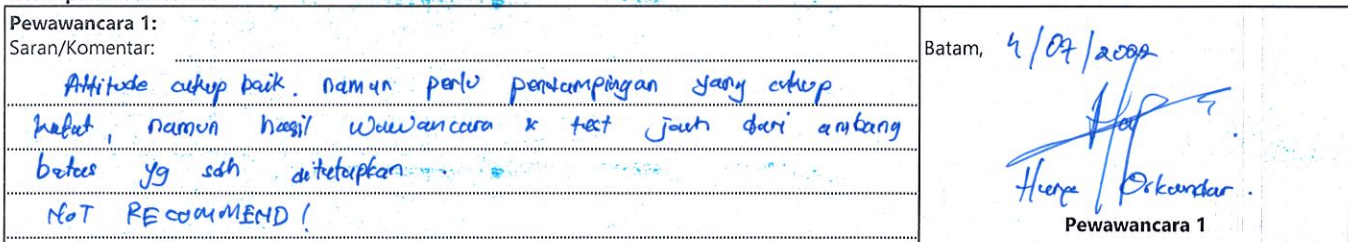 Pewawancara 1:
Saran/Komentar:
Attitude cukup baik. namun perlu pendampingan yang cukup
namun hasil wawancara & test jauh dari ambang
batas yg sdh ditetapkan.
NOT RECOMMEND!
Batam, 4/07/2022
Iskandar.
Pewawancara 1